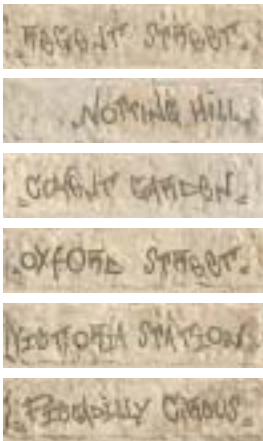 REGENT STREET
NOTTING HILL
COVENT GARDEN
OXFORD STREET
VICTORIA STATION
PICCADILLY CIRCUS